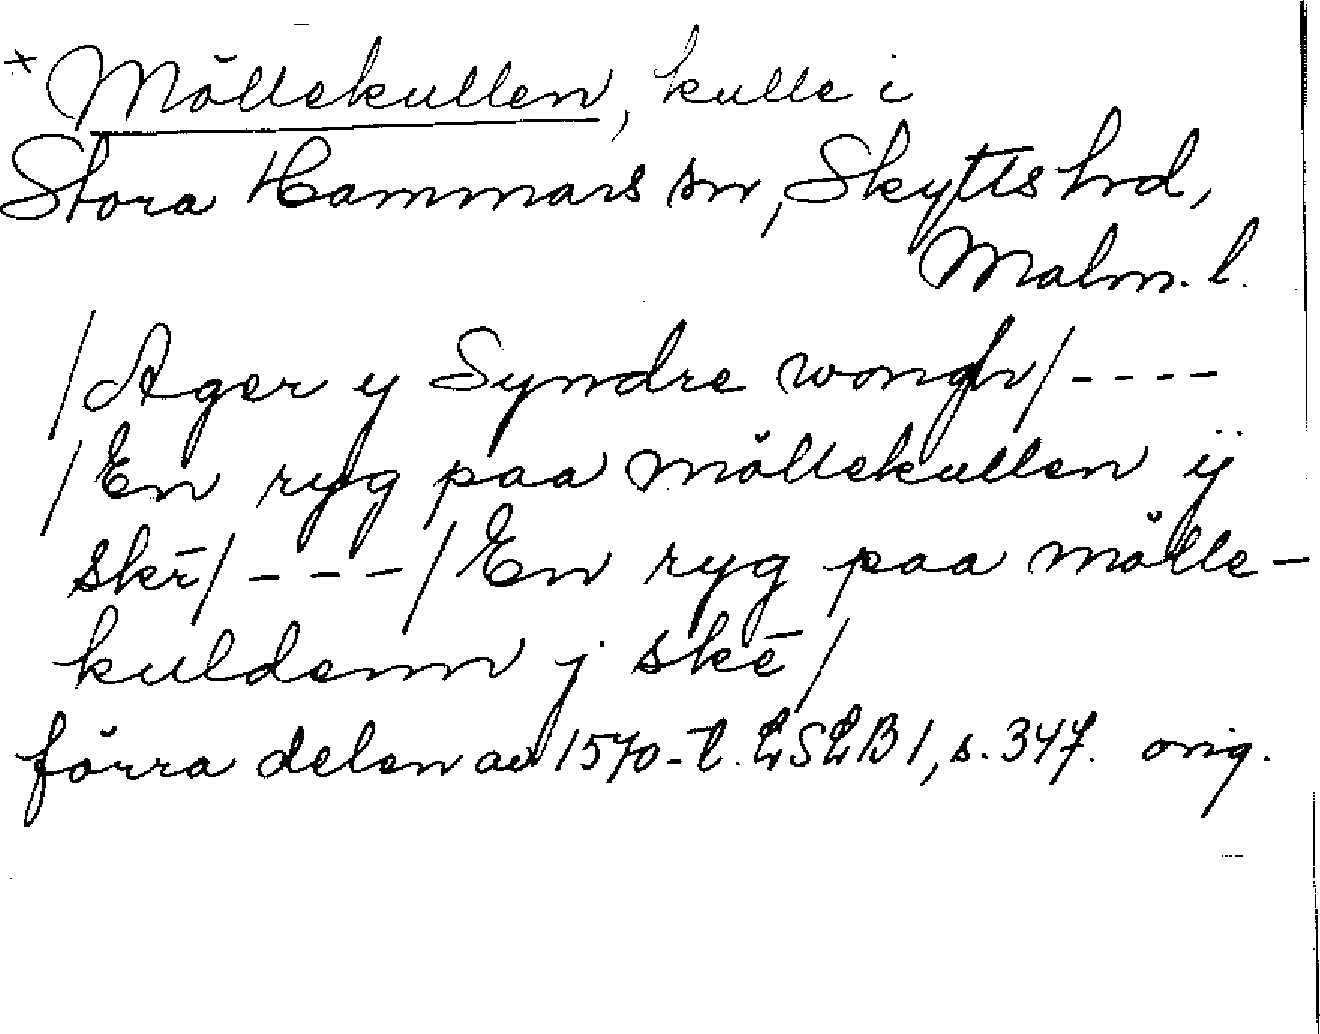 * Möllekullen, kulle i
Stora Hammars sn, Skytts hrd,
Malm. l.
/Ager y Syndre wongh/----
/En ryg paa möllekullen ij
skē/---/En ryg paa mölle-
kuldenn j skē/
förra delen av 1570-t. LSLB 1, s. 347. orig.